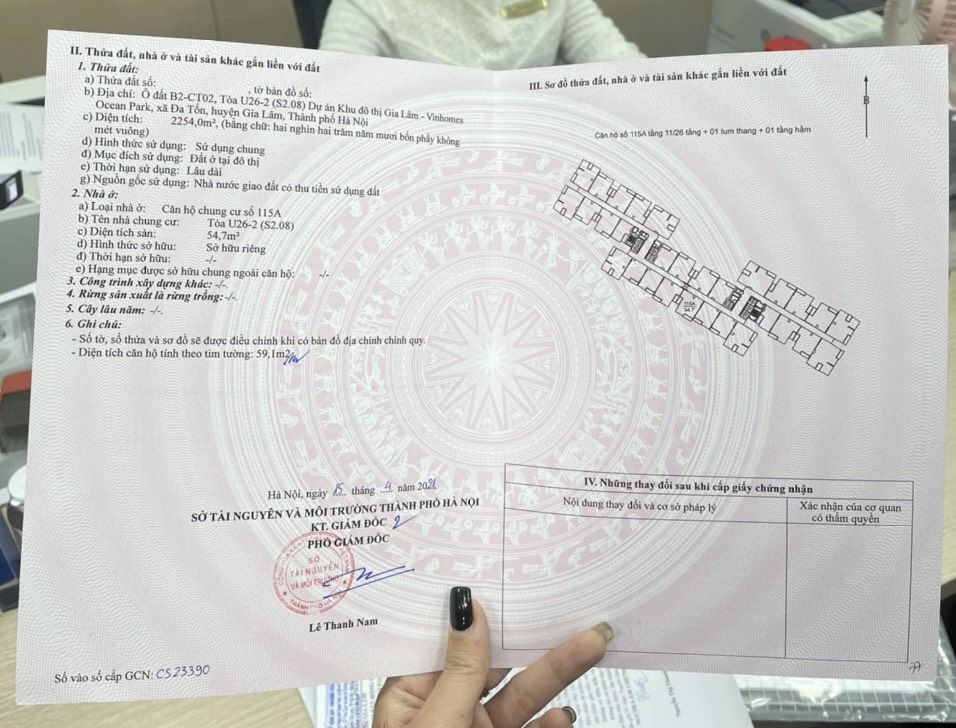 II. Thửa đất, nhà ở và tài sản khác gắn liền với đất
1. Thửa đất:
a) Thửa đất số: , tờ bản đồ số:
b) Địa chỉ: Ô đất B2-CT02, Tòa U26-2 (S2.08) Dự án Khu đô thị Gia Lâm - Vinhomes
Ocean Park, xã Đa Tốn, huyện Gia Lâm, Thành phố Hà Nội
c) Diện tích: 2254,0m², (bằng chữ: hai nghìn hai trăm năm mươi bốn phẩy không
mét vuông)
d) Hình thức sử dụng: Sử dụng chung
đ) Mục đích sử dụng: Đất ở tại đô thị
e) Thời hạn sử dụng: Lâu dài
g) Nguồn gốc sử dụng: Nhà nước giao đất có thu tiền sử dụng đất
2. Nhà ở:
a) Loại nhà ở: Căn hộ chung cư số 115A
b) Tên nhà chung cư: Tòa U26-2 (S2.08)
c) Diện tích sàn: 54,7m²
d) Hình thức sở hữu: Sở hữu riêng
đ) Thời hạn sở hữu: -/-
e) Hạng mục được sở hữu chung ngoài căn hộ: -/-
3. Công trình xây dựng khác: -/-.
4. Rừng sản xuất là rừng trồng: -/-.
5. Cây lâu năm: -/-.
6. Ghi chú:
- Số tờ, số thửa và sơ đồ sẽ được điều chỉnh khi có bản đồ địa chính chính quy.
- Diện tích căn hộ tính theo tim tường: 59,1m2
Hà Nội, ngày 15 tháng 4 năm 2021
SỞ TÀI NGUYÊN VÀ MÔI TRƯỜNG THÀNH PHỐ HÀ NỘI
KT. GIÁM ĐỐC
PHÓ GIÁM ĐỐC
SỞ
TÀI NGUYÊN
VÀ MÔI TRƯỜNG
Lê Thanh Nam
Số vào sổ cấp GCN: CS23390
III. Sơ đồ thửa đất, nhà ở và tài sản khác gắn liền với đất
B
Căn hộ số 115A tầng 11/26 tầng + 01 tum thang + 01 tầng hầm
115A
54.7
IV. Những thay đổi sau khi cấp giấy chứng nhận
Nội dung thay đổi và cơ sở pháp lý
Xác nhận của cơ quan
có thẩm quyền